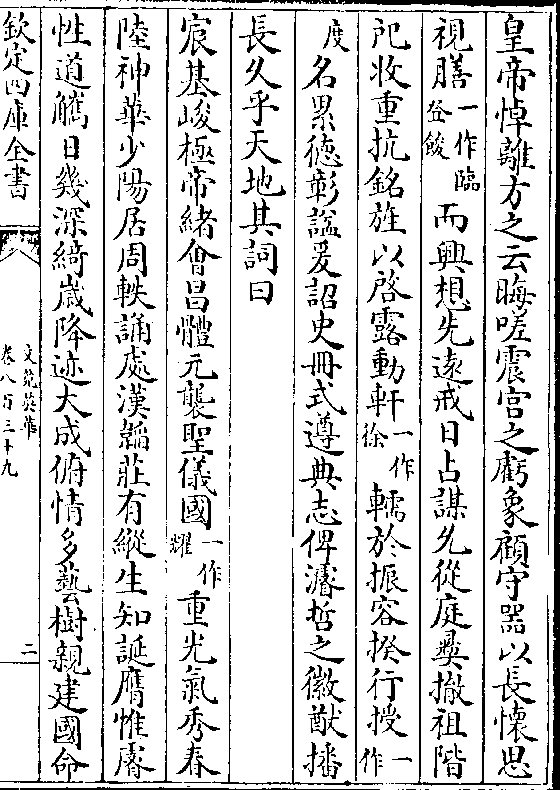 皇帝悼離方之云晦嗟震宮之虧象顧守器以長懷思
視膳一作臨登餕而興想先遠戒日占謀允從庭彛撤祖階
戺收重抗銘旌以啓露動軒一作徐轜於振容揆行授一作
度名累德彰諡爰詔史冊式遵典志俾濬哲之徽猷播
長久乎天地其詞曰
宸基峻極帝緒會昌體元襲聖儀國一作耀重光氣秀春
陸神華少陽居周軼誦處漢韜莊有縱生知誕膺惟睿
性道觿日幾深綺嵗降迹大成俯情多藝樹親建國命
欽定四庫全書
文苑英華
卷八百三十九
二